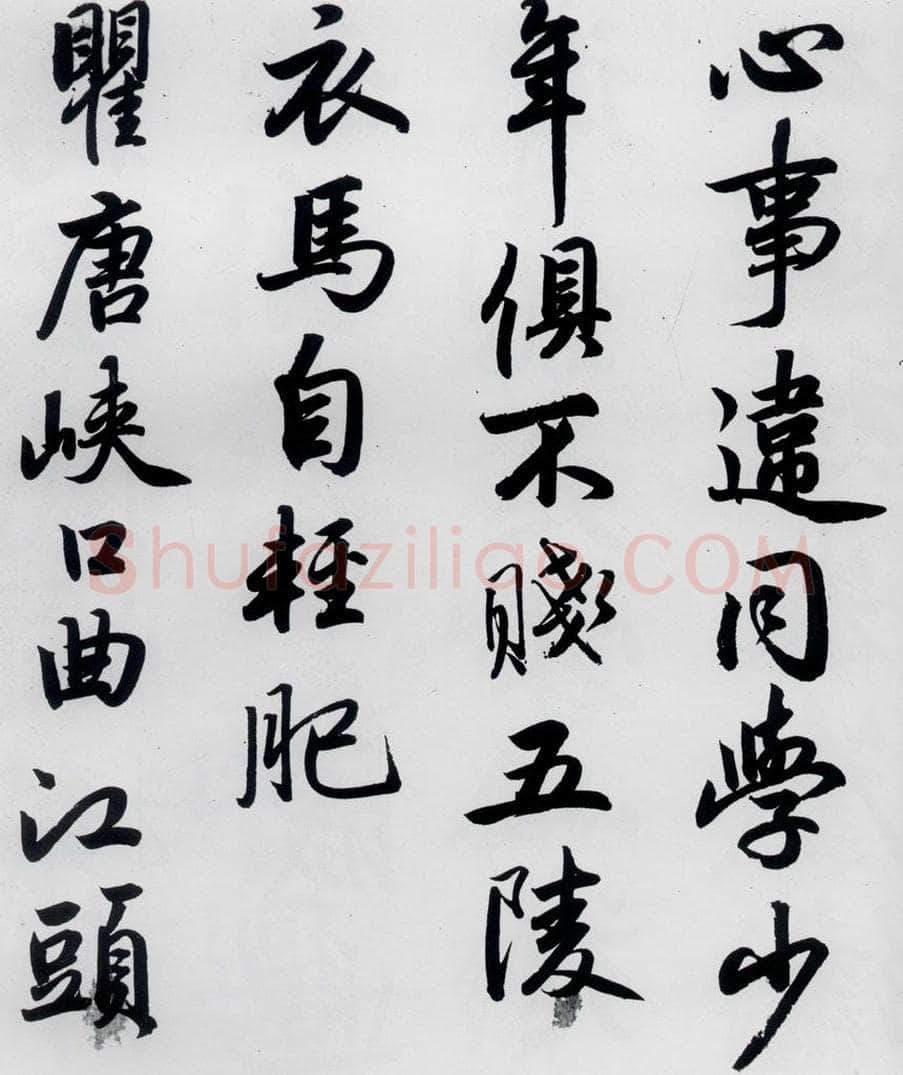 心事違同學少
年俱不賤五陵
衣馬自輕肥
瞿唐峽口曲江頭
Shufaziliao.COM